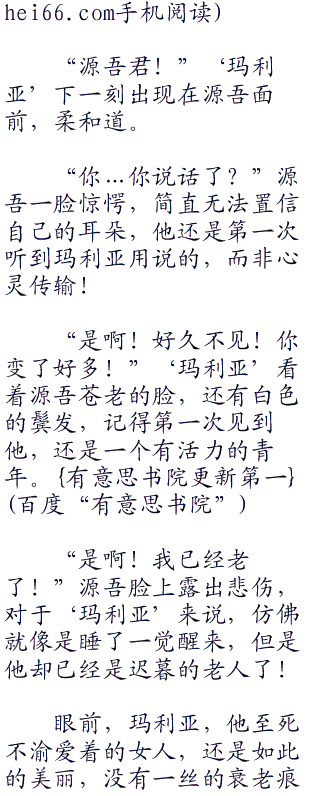 hei66.com手机阅读)
“源吾君！”‘玛利
亚’下一刻出现在源吾面
前，柔和道。
“你…你说话了？”源
吾一脸惊愕，简直无法置信
自己的耳朵，他还是第一次
听到玛利亚用说的，而非心
灵传输！
“是啊！好久不见！你
变了好多！”‘玛利亚’看
着源吾苍老的脸，还有白色
的鬓发，记得第一次见到
他，还是一个有活力的青
年。{有意思书院更新第一}
(百度“有意思书院”)
“是啊！我已经老
了！”源吾脸上露出悲伤，
对于‘玛利亚’来说，仿佛
就像是睡了一觉醒来，但是
他却已经是迟暮的老人了！
眼前，玛利亚，他至死
不渝爱着的女人，还是如此
的美丽，没有一丝的衰老痕